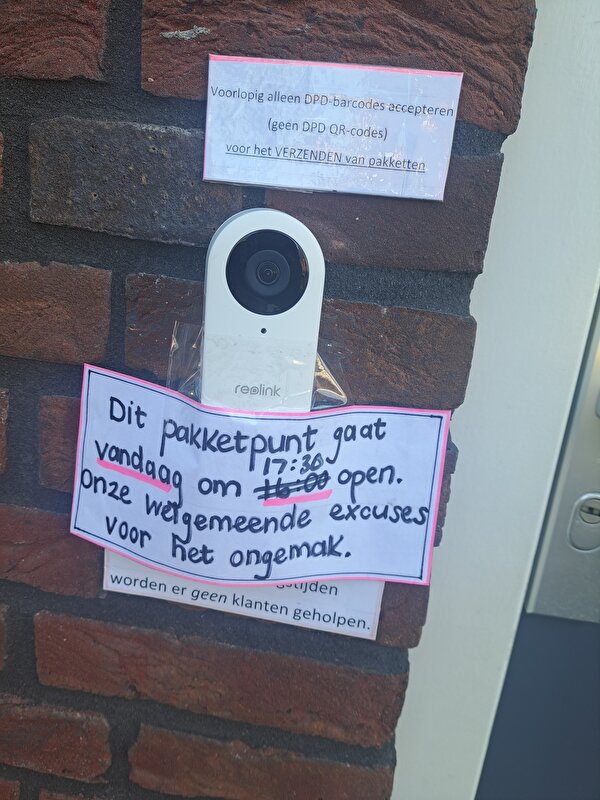 Voorlopig alleen DPD-barcodes accepteren
(geen DPD QR-codes)
voor het VERZENDEN van pakketten
reolink
Dit pakketpunt gaat
vandaag om 17:30 16:00 open.
Onze welgemeende excuses
voor het ongemak.
worden er geen klanten geholpen.